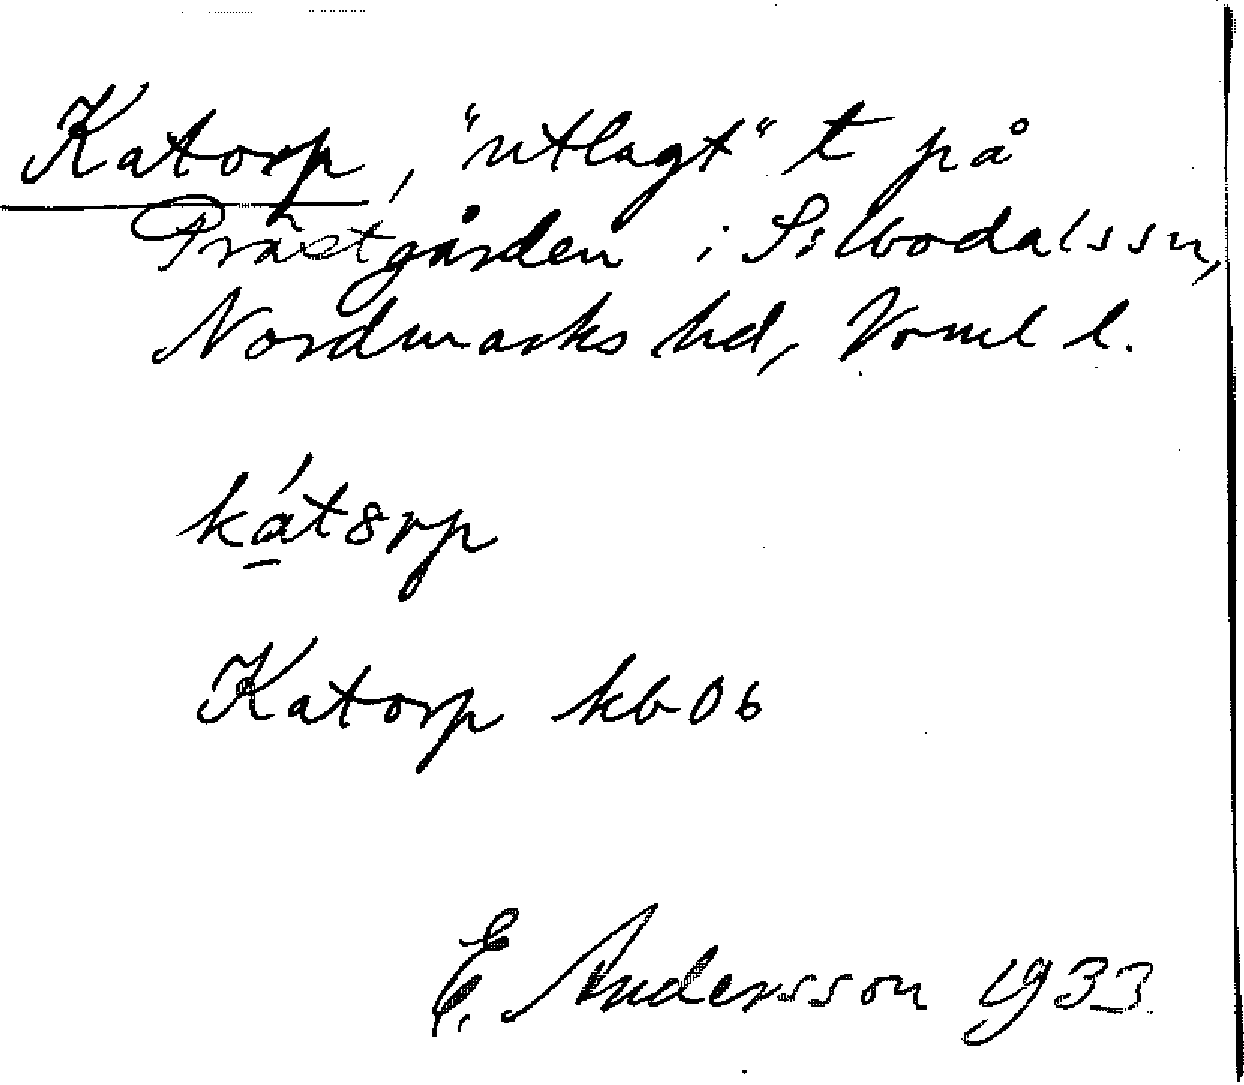 Katorp, "utlagt" t på
Prästgården i Silbodals sn,
Nordmarks hd, Vrml l.
kát8rp
Katorp kb 06
E. Andersson 1933